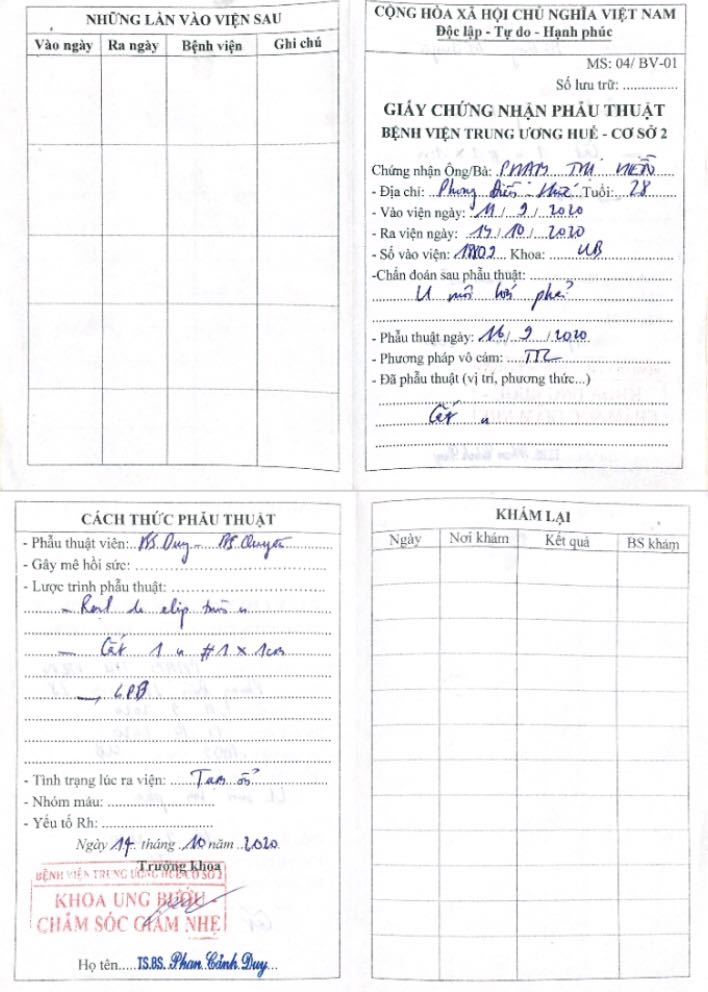 NHỮNG LẦN VÀO VIỆN SAU
Vào ngày Ra ngày Bệnh viện Ghi chú
CỘNG HÒA XÃ HỘI CHỦ NGHĨA VIỆT NAM
Độc lập - Tự do - Hạnh phúc
MS: 04/ BV-01
Số lưu trữ: ...............
GIẤY CHỨNG NHẬN PHẪU THUẬT
BỆNH VIỆN TRUNG ƯƠNG HUẾ - CƠ SỞ 2
Chứng nhận Ông/Bà: PHẠM THỊ
- Địa chỉ: Phong Điền - Huế Tuổi: 28
- Vào viện ngày: 11 / 9 / 2020
- Ra viện ngày: 14 / 10 / 2020
- Số vào viện: Khoa: UB
-Chẩn đoán sau phẫu thuật:
U môi phải
- Phẫu thuật ngày: 16 / 9 / 2020
- Phương pháp vô cảm:
- Đã phẫu thuật (vị trí, phương thức...)
Cắt u
CÁCH THỨC PHẪU THUẬT
- Phẫu thuật viên: BS. Duy - BS.
- Gây mê hồi sức:
- Lược trình phẫu thuật:
- da elip u
- Cắt 1 u # 1 x 1cm
GPB
- Tình trạng lúc ra viện: Tạm ổn
- Nhóm máu:
- Yếu tố Rh:
Ngày 14 tháng 10 năm 2020
Trưởng khoa
BỆNH VIỆN TRUNG ƯƠNG HUẾ CƠ SỞ 2
KHOA UNG BƯỚU -
CHĂM SÓC GIẢM NHẸ
Họ tên.....TS.BS. Phan Cảnh Duy
KHÁM LẠI
Ngày Nơi khám Kết quả BS khám